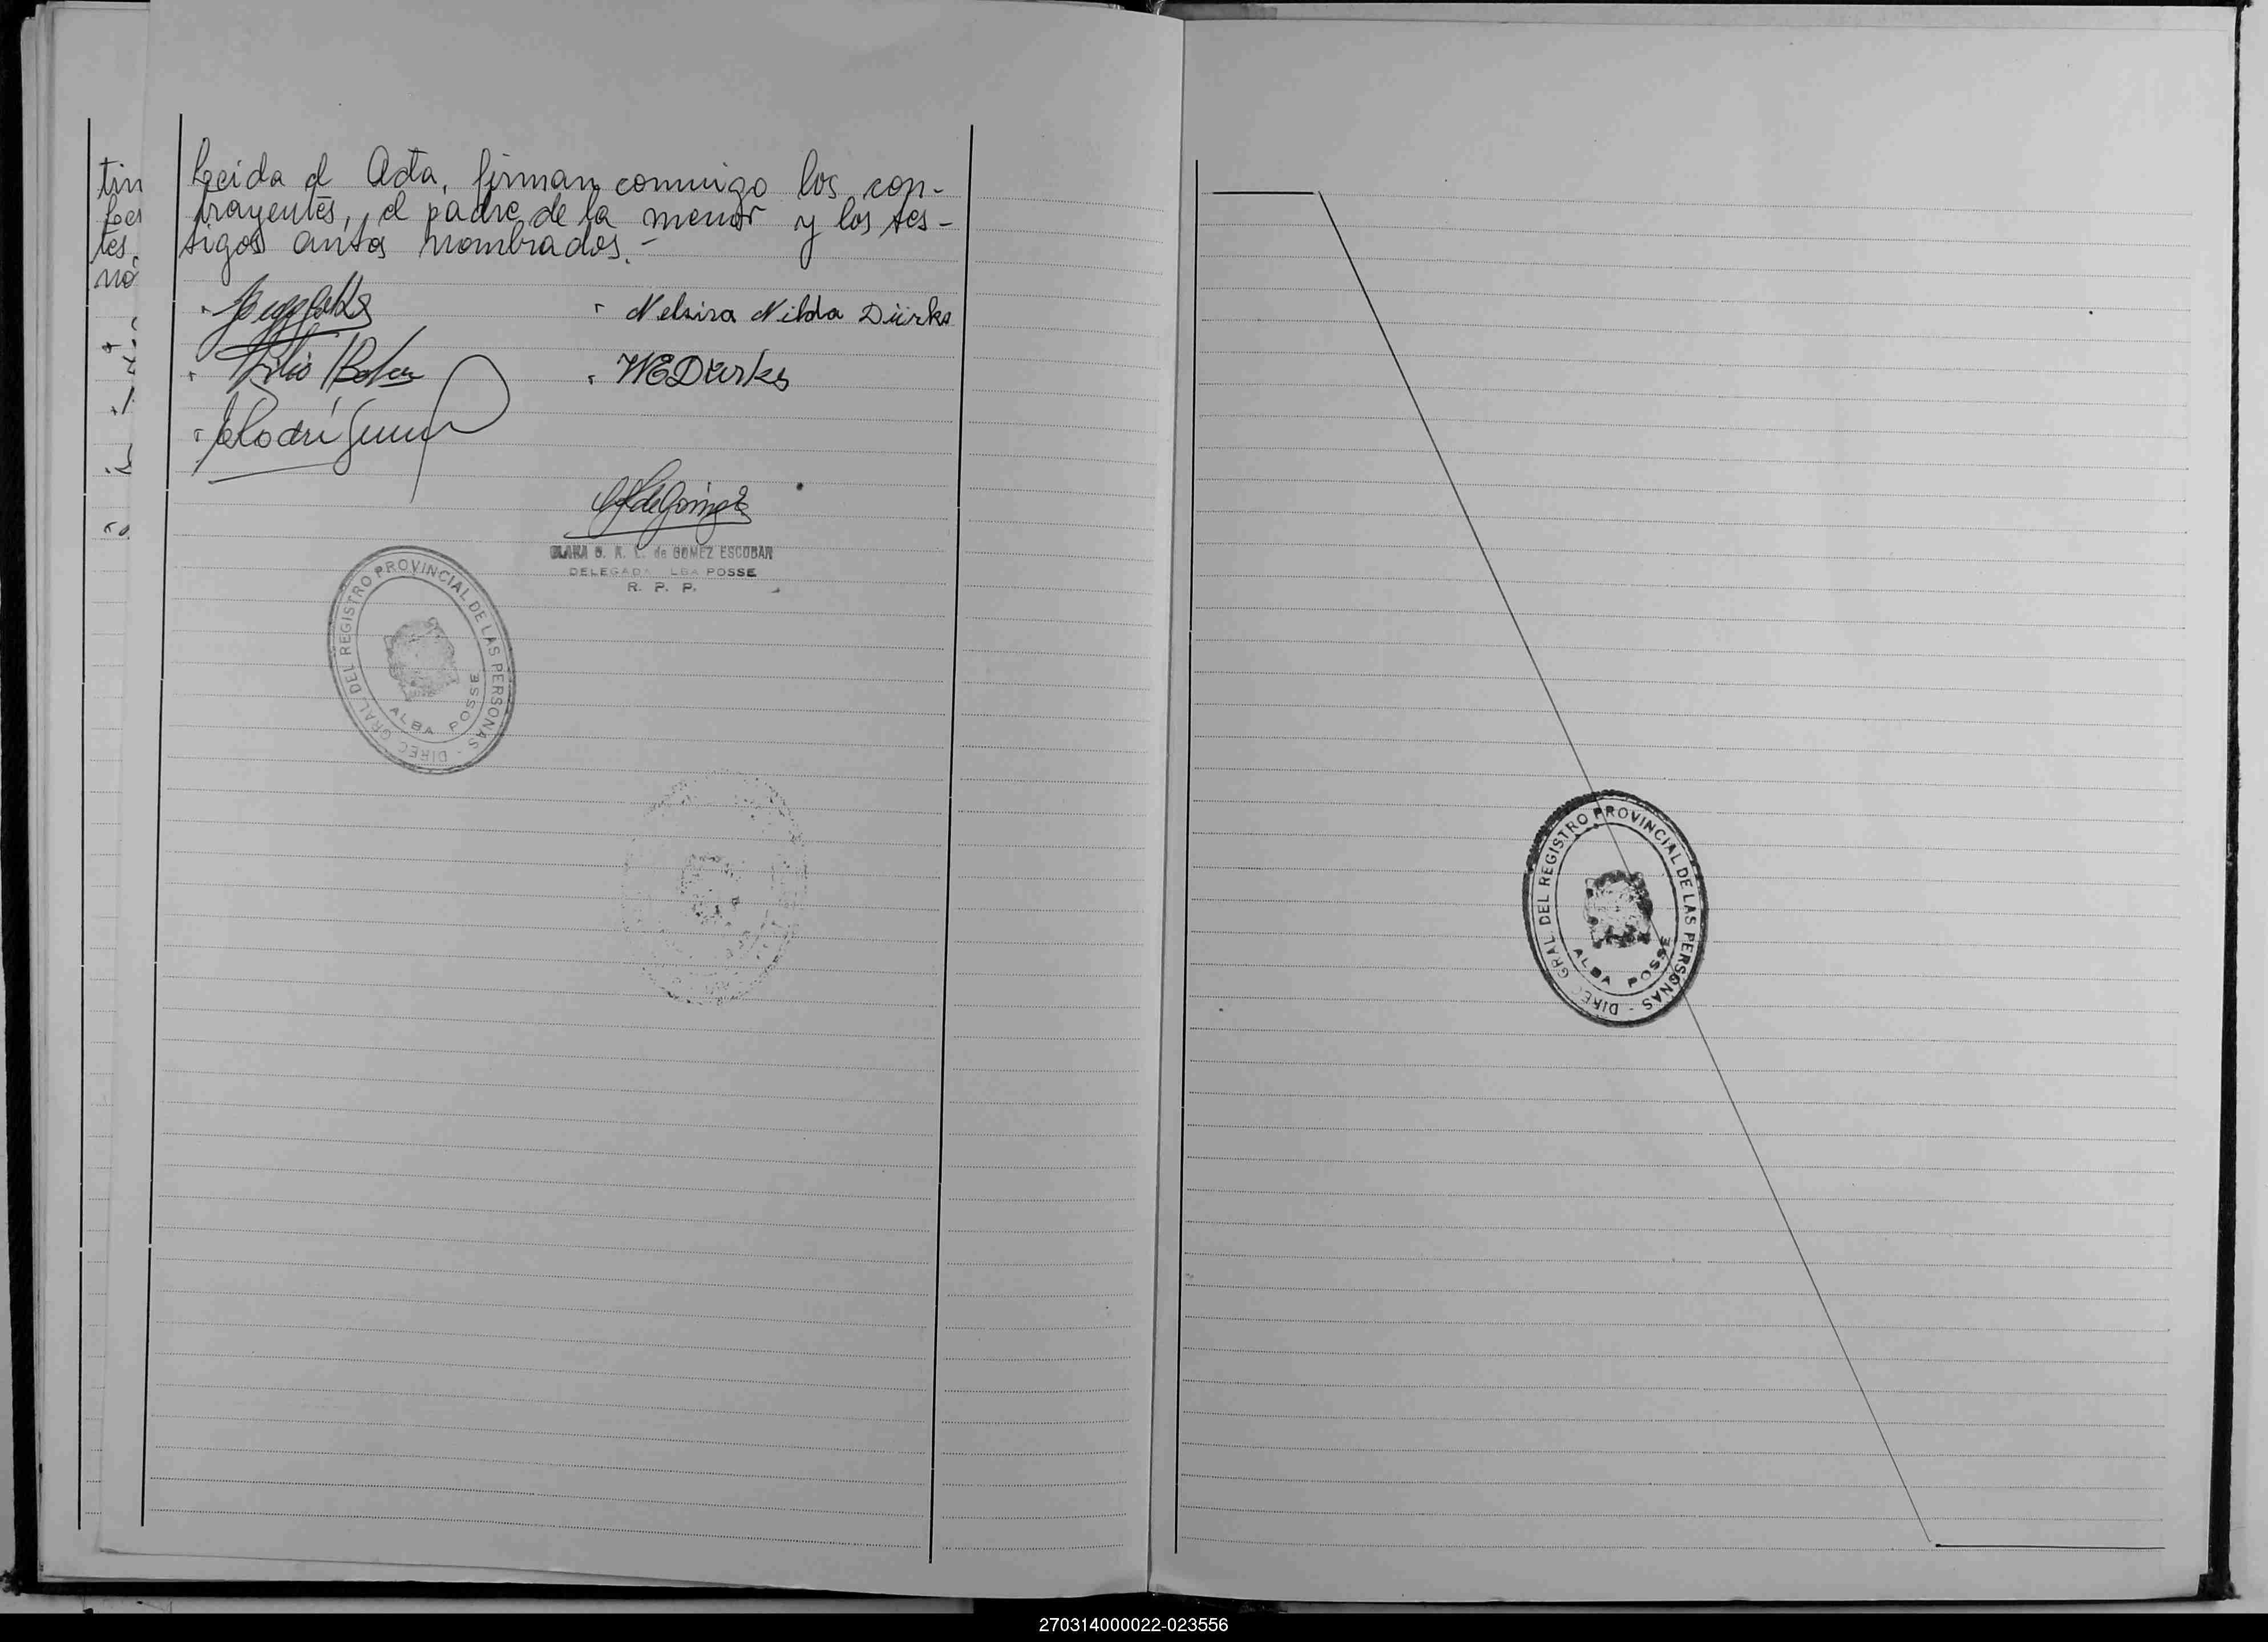 tin
lee
tes.
no
Leeida el Acta, firman conmigo los con-
trayentes, el padre de la menor y los tes-
tigos antes nombrados.-
Nelsira Nilda Dürks
WEDürks
de GOMEZ ESCOBAR
DELEGADA LBA POSSE
R. P. P.
DIREC GRAL DEL REGISTRO PROVINCIAL DE LAS PERSONAS -
ALBA POSSE
DIREC GRAL DEL REGISTRO PROVINCIAL DE LAS PERSONAS -
ALBA POSSE
270314000022-023556